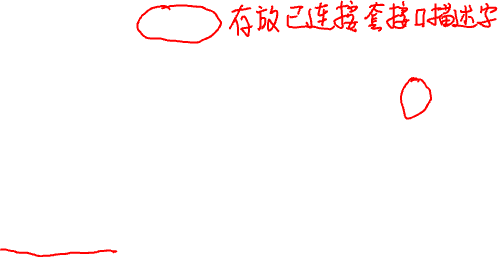 存放已连接套接口描述字